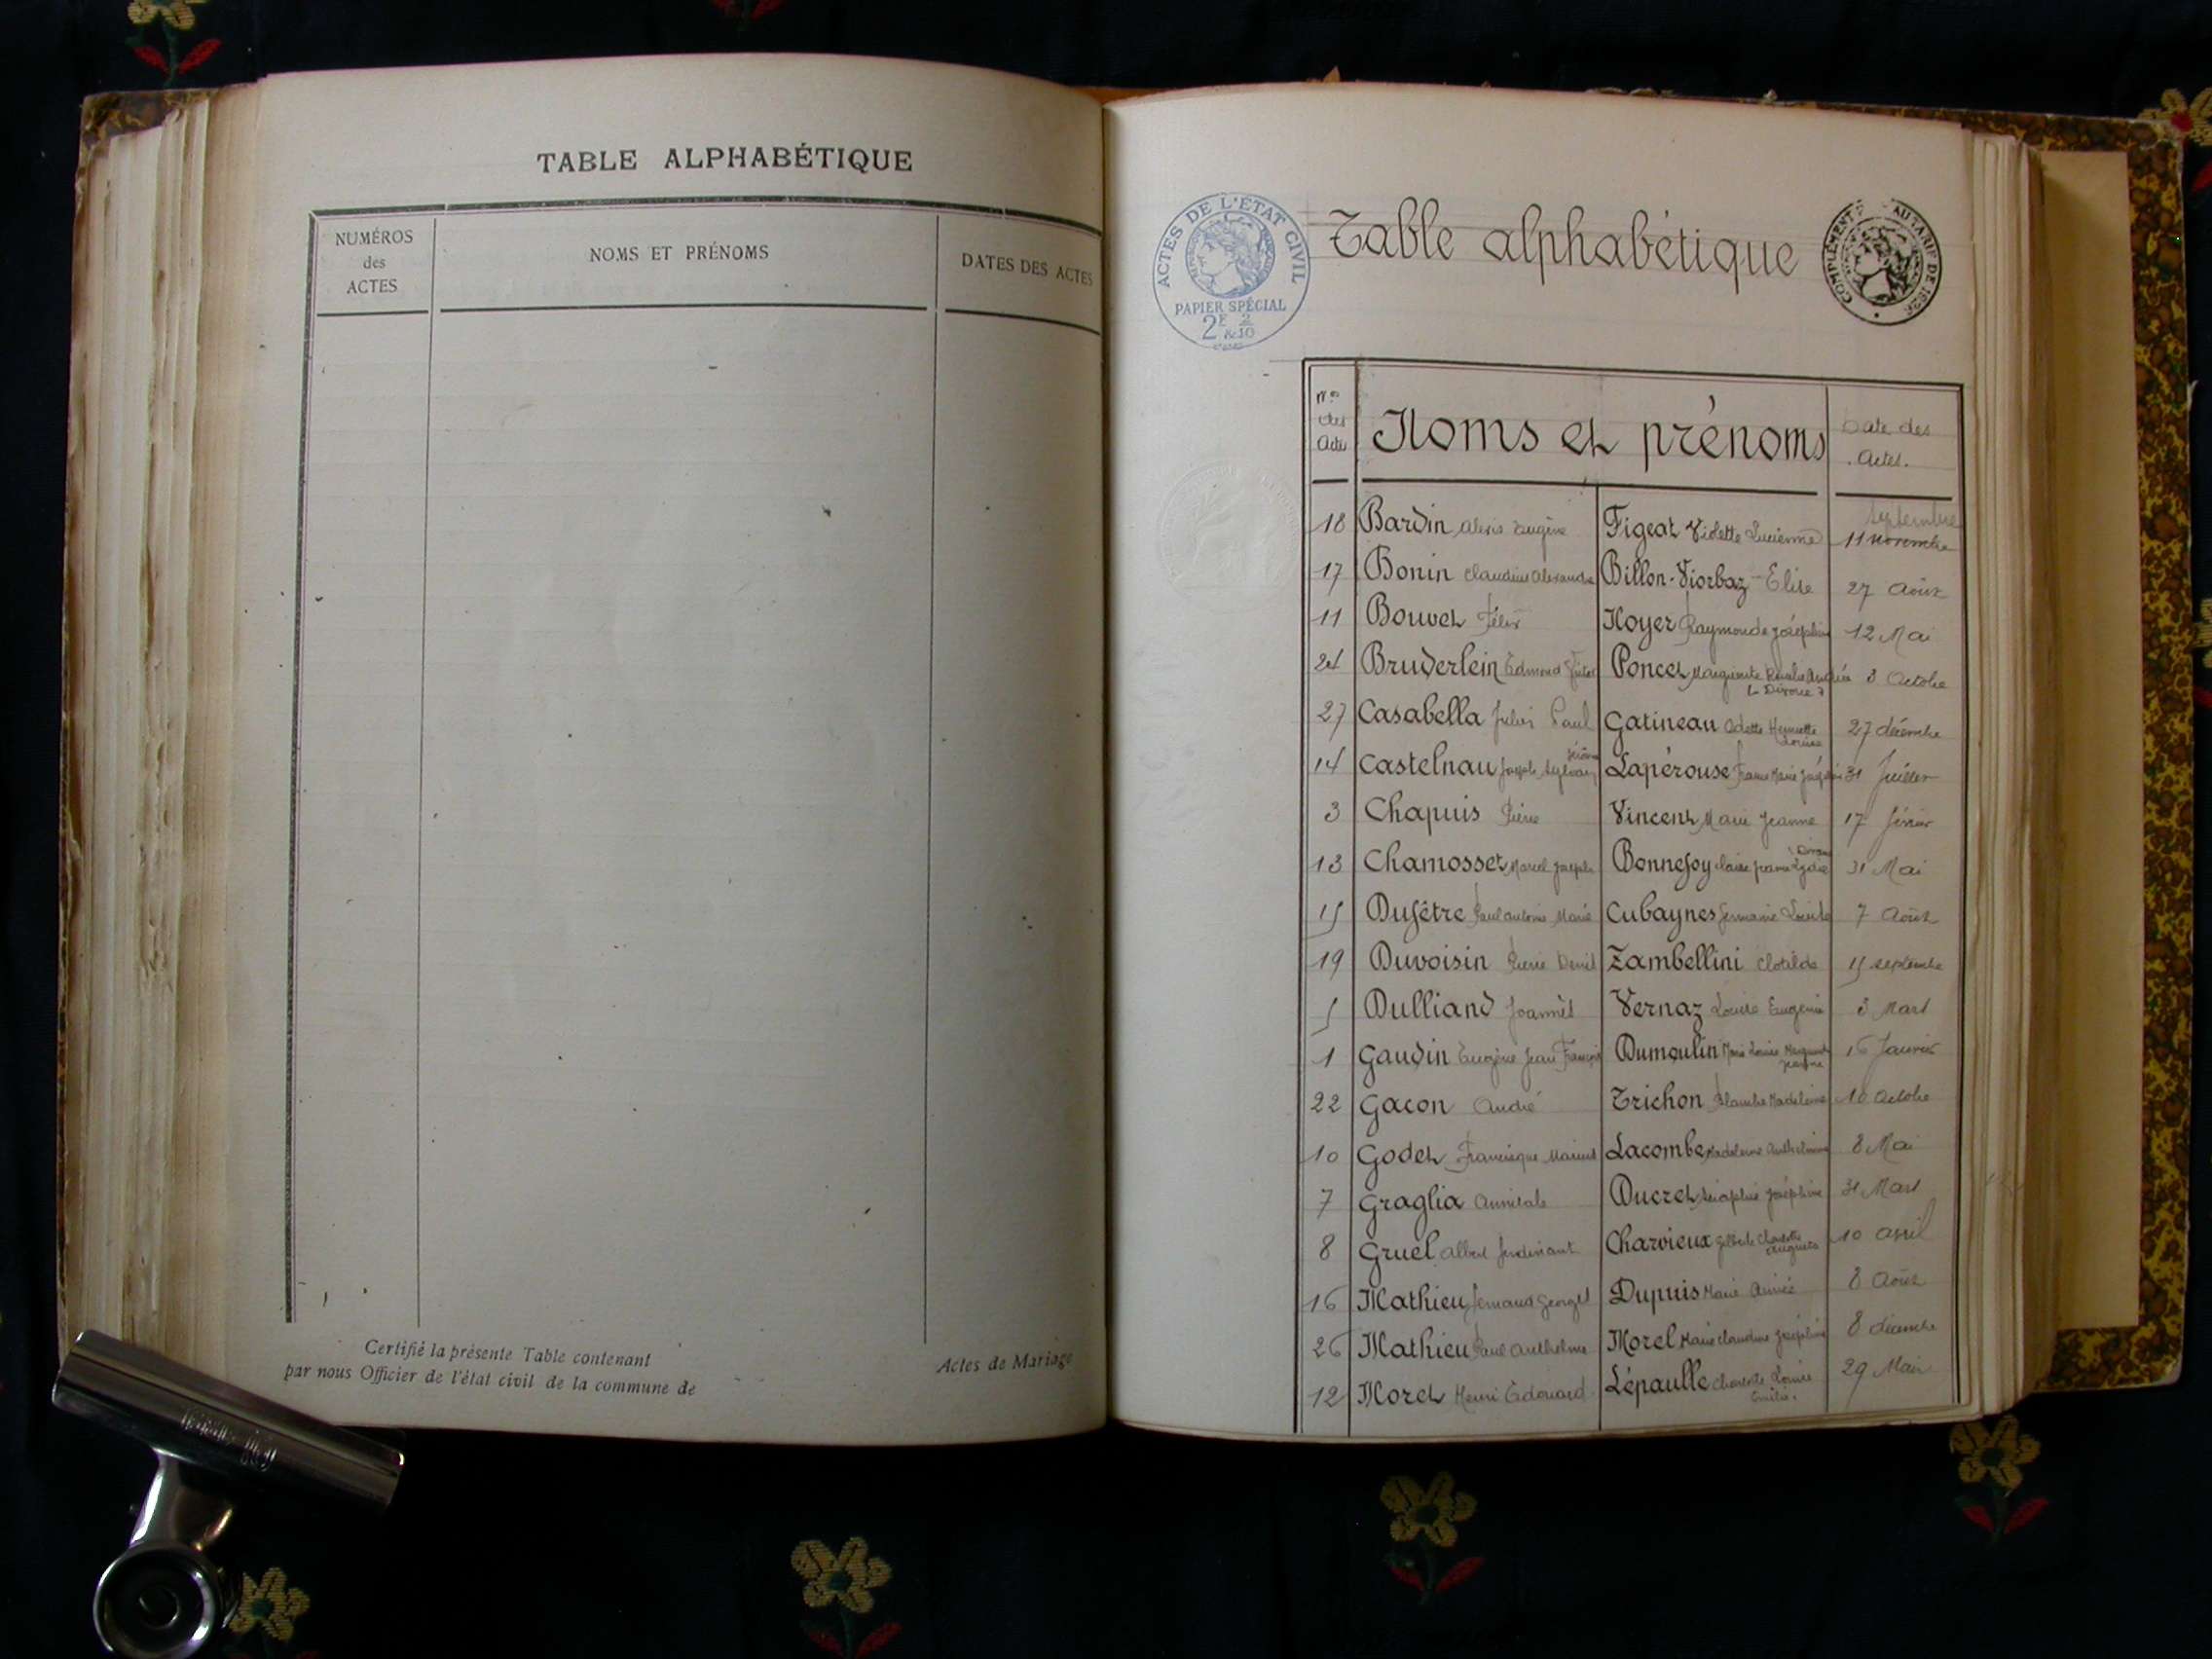 TABLE ALPHABÉTIQUE
NUMÉROS
des
ACTES
NOMS ET PRÉNOMS
DATES DES ACTES
Certifié la présente Table contenant
Actes de Mariage
par nous Officier de l'état civil de la commune de
ACTES DE L'ÉTAT CIVIL
PAPIER SPÉCIAL
Table alphabétique
COMPLÉMENT AU TARIF DE
Nos
des
Actes
Noms et prénoms
Date des
Actes.
septembre
18 Bardin Alexis Eugène Figeat Violette Lucienne 11 novembre
17 Bonin Claudius Alexandre Billon-Viorbaz Elise 27 Août
11 Bouvet Félix Noyer Raymonde Joséphine 12 Mai
24 Bruderlein Edmond Poncet Marguerite Andrée 3 Octobre
27 Casabella Jules Paul Gatineau Odette Henriette 27 décembre
Louise
14 Castelnau Joseph Lapérouse Marie 31 Juillet
3 Chapuis Pierre Vincent Marie Jeanne 17 février
13 Chamosset Marcel Joseph Bonnefoy Lydie 31 Mai
15 Dufêtre Paul Antoine Marie Cubaynes Germaine 7 Août
19 Duvoisin Pierre Zambellini Clotilde 15 septembre
5 Dulliand Joannès Vernaz Louise Eugénie 3 Mars
1 Gaudin Eugène Jean François Dumoulin Marie Louise Marguerite 16 Janvier
22 Gacon André Trichon Blanche Madeleine 10 Octobre
10 Godet Francisque Marius Lacombe Madeleine 8 Mai
7 Graglia Annibale Ducret Séraphie Joséphine 31 Mars
8 Gruel Albert Ferdinant Charvieux Gilberte Charlotte 10 avril
16 Mathieu Fernand Georges Dupuis Marie Aimée 8 Août
26 Mathieu Paul Anthelme Morel Marie Claudine Joséphine 8 décembre
12 Moret Henri Edouard Lépaulle Charlotte Louise 29 Mai
Emilie.